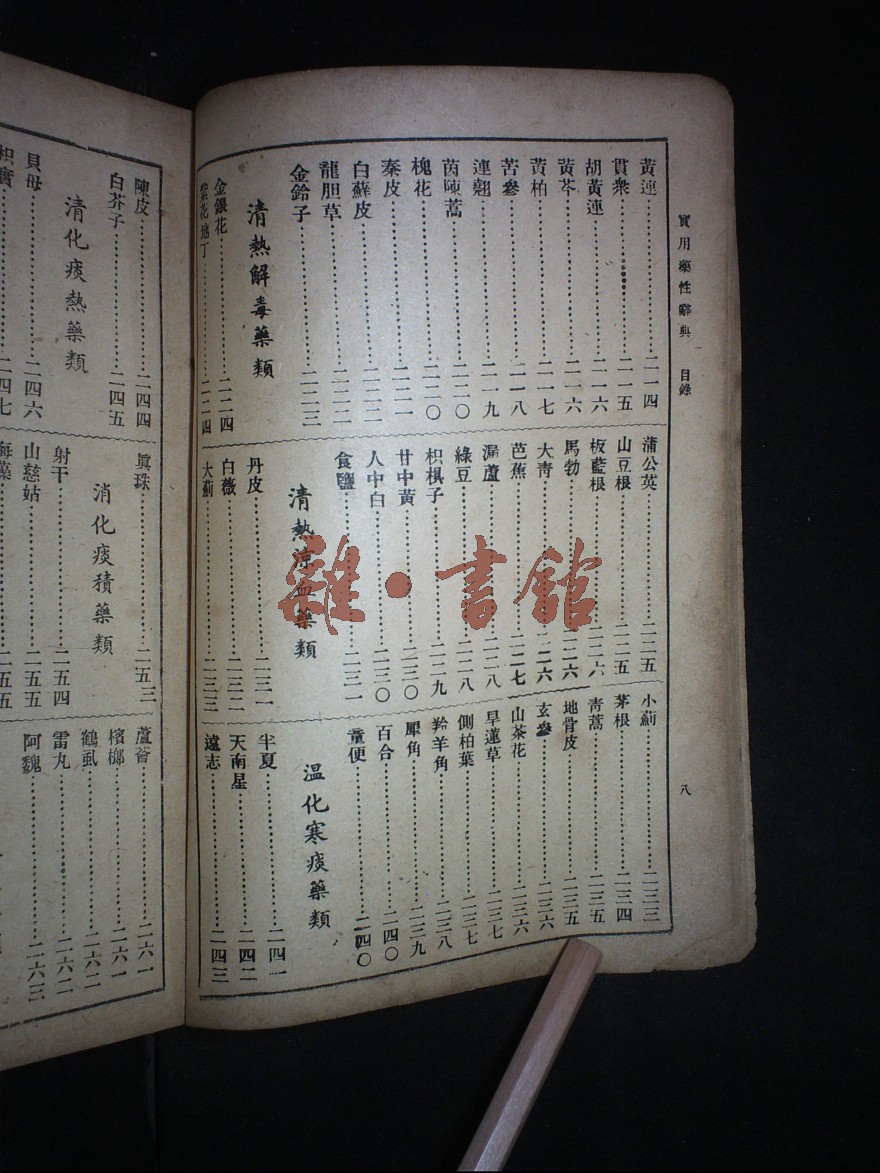 實用藥性辭典 目錄 八
黃連…………二一四
貫衆…………二一五
胡黃連…………二一六
黃芩…………二一六
黃柏…………二一七
苦參…………二一八
連翹…………二一九
茵陳蒿…………二二〇
槐花…………二二〇
秦皮…………二二一
白蘚皮…………二二二
龍胆草…………二二二
金鈴子…………二二三
清熱解毒藥類
金銀花…………二二四
紫花地丁…………二二四
蒲公英…………二二五
山豆根…………二二五
板藍根…………二二六
馬勃…………二二六
大青…………二二六
芭蕉…………二二七
漏蘆…………二二八
綠豆…………二二八
枳椇子…………二二九
甘中黃…………二三〇
人中白…………二三〇
食鹽…………二三一
清熱凉血藥類
丹皮…………二三一
白薇…………二三二
大薊…………二三三
小薊…………二三三
茅根…………二三四
青蒿…………二三五
地骨皮…………二三五
玄參…………二三六
山茶花…………二三六
旱蓮草…………二三七
側柏葉…………二三七
羚羊角…………二三八
犀角…………二三九
百合…………二四〇
童便…………二四〇
溫化寒痰藥類
半夏…………二四一
天南星…………二四二
遠志…………二四三
陳皮…………二四四
白芥子…………二四五
清化痰熱藥類
貝母…………二四六
枳實…………二四七
眞珠…………二五三
消化痰積藥類
射干…………二五四
山慈姑…………二五五
海藻…………二五五
蘆薈…………二六一
檳榔…………二六一
鶴虱…………二六二
雷丸…………二六二
阿魏…………二六三
雜·書館